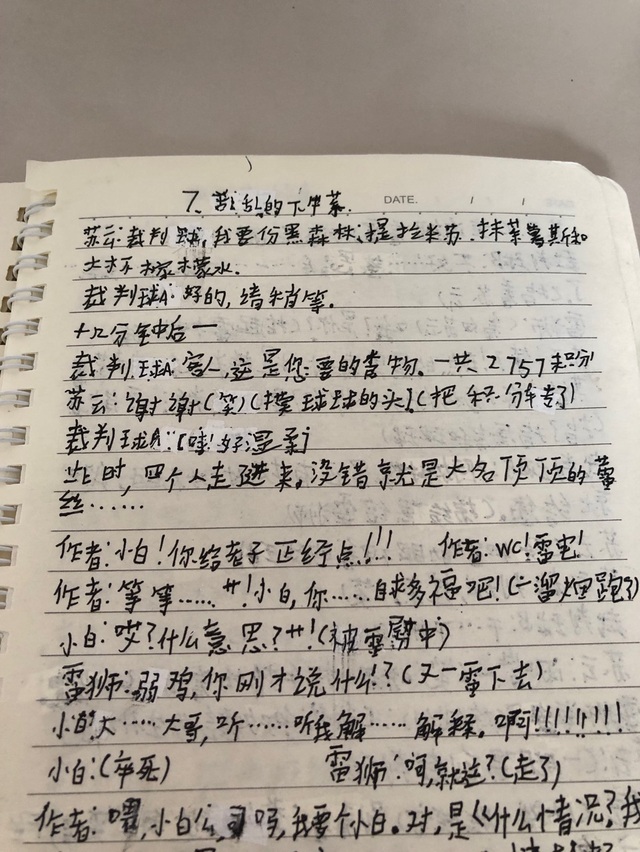 7、混乱的下午茶. DATE. / /
苏云:裁判球,我要份黑森林,提拉米苏.抹茶慕斯和
大杯檬檬水.
裁判球A:好的,请稍等.
十几分钟后一
裁判球A:客人,这是您要的食物.一共2757积分
苏云:谢谢(笑)(摸球球的头)(把积分转了)
裁判球A:[哇!好温柔]
此时,四个人走进来,没错就是大名顶顶的
丝……
作者:小白!你给老子正经点!!! 作者:WC!雷电!
作者:等等……艹!小白,你……自求多福吧!(一溜烟跑了)
小白:哎?什么意思?艹!(被雷劈中)
雷狮:弱鸡,你刚才说什么!?(又一雷下去)
小白:大……大哥,听……听我解……解释。啊!!!!!!!!!
小白:(卒死) 雷狮:呵,就这?(走了)
作者:喂,小白公司吗,我要个小白。对,是《什么情况?我